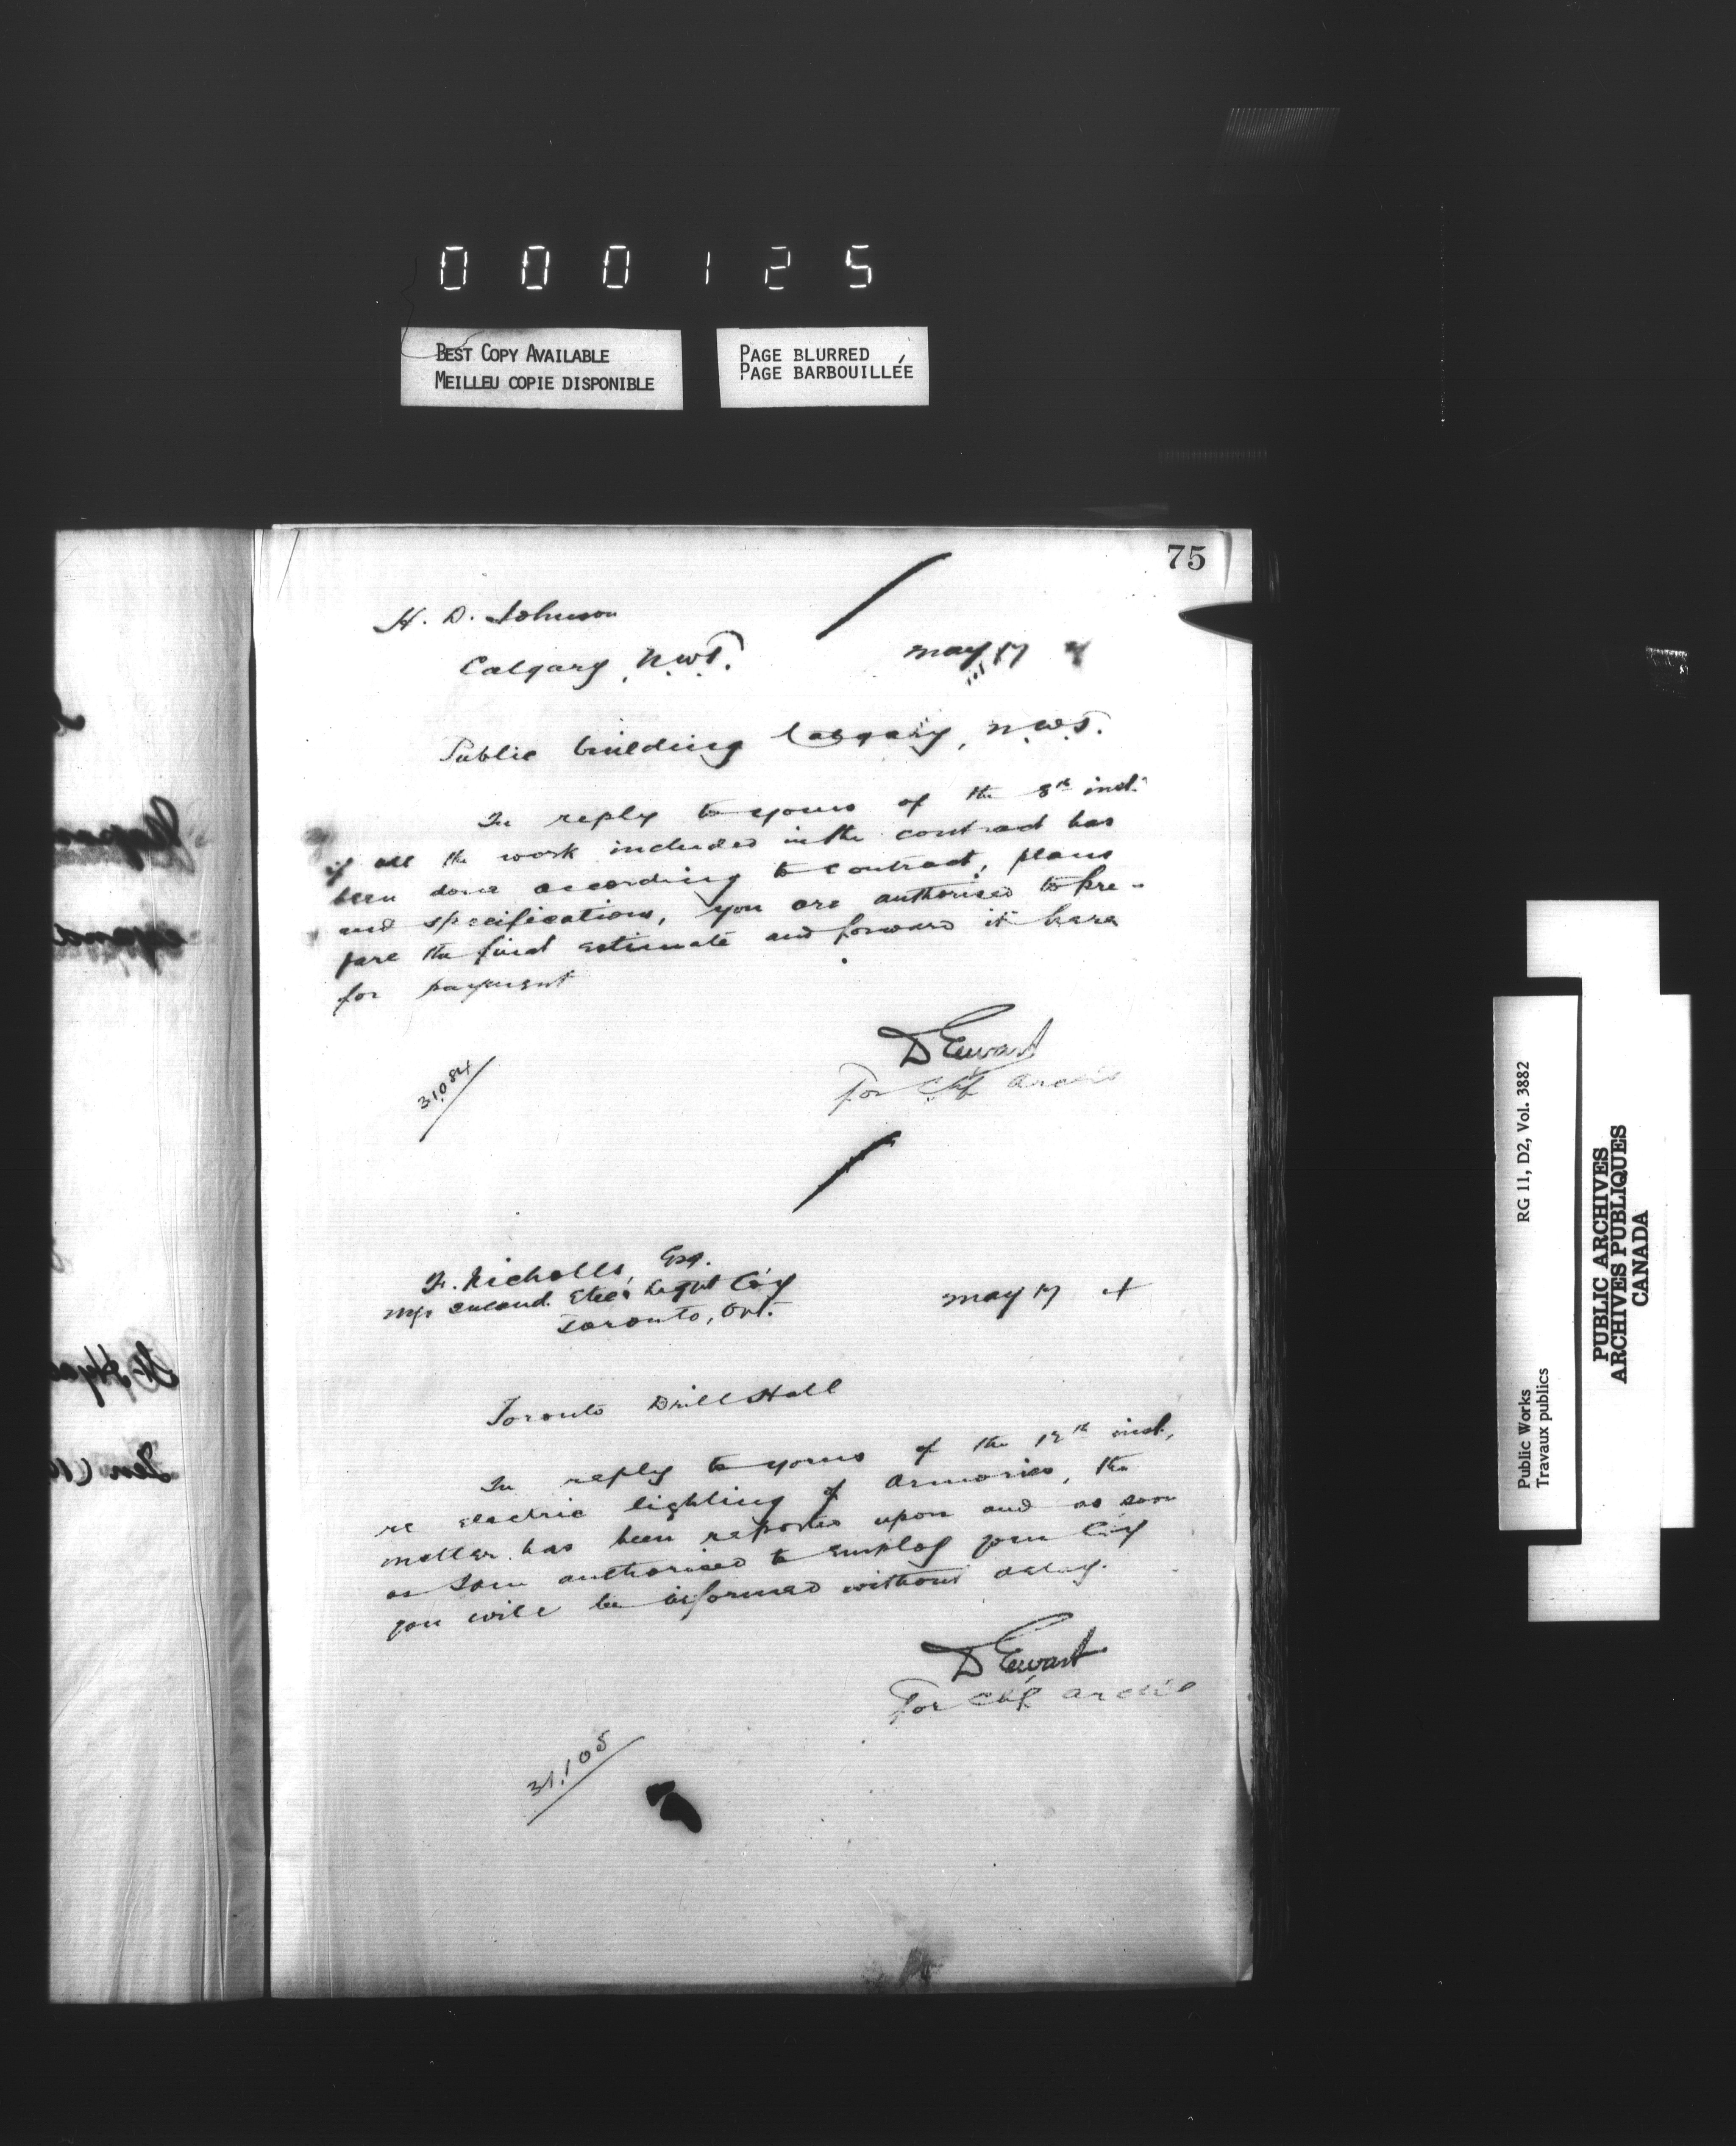 000125
BEST COPY AVAILABLE
MEILLEU COPIE DISPONIBLE
PAGE BLURRED
PAGE BARBOUILLÉE
75
H. D. Johnson
Calgary, N.W.T.
May 17 4
Public building Calgary, N.W.T.
In reply to yours of the 8th inst.
if all the work included in the contract has
been done according to contract, plans
and specifications, you are authorised to pre-
pare the final estimate and forward it here
for payment
D Ewart
For Chf Archt
31084
F. Nicholls, Esq.
Mgr Incand. Elec. Light Coy
Toronto, Ont.
May 17 4
Toronto Drill Hall
In reply to yours of the 12th inst,
re electric lighting of Armories, the
matter has been reported upon and as soon
as I am authorised to employ your Coy
you will be informed without delay.
D Ewart
For Chf Archt
31,105
Public Works
Travaux publics
RG 11, D2, Vol. 3882
PUBLIC ARCHIVES
ARCHIVES PUBLIQUES
CANADA